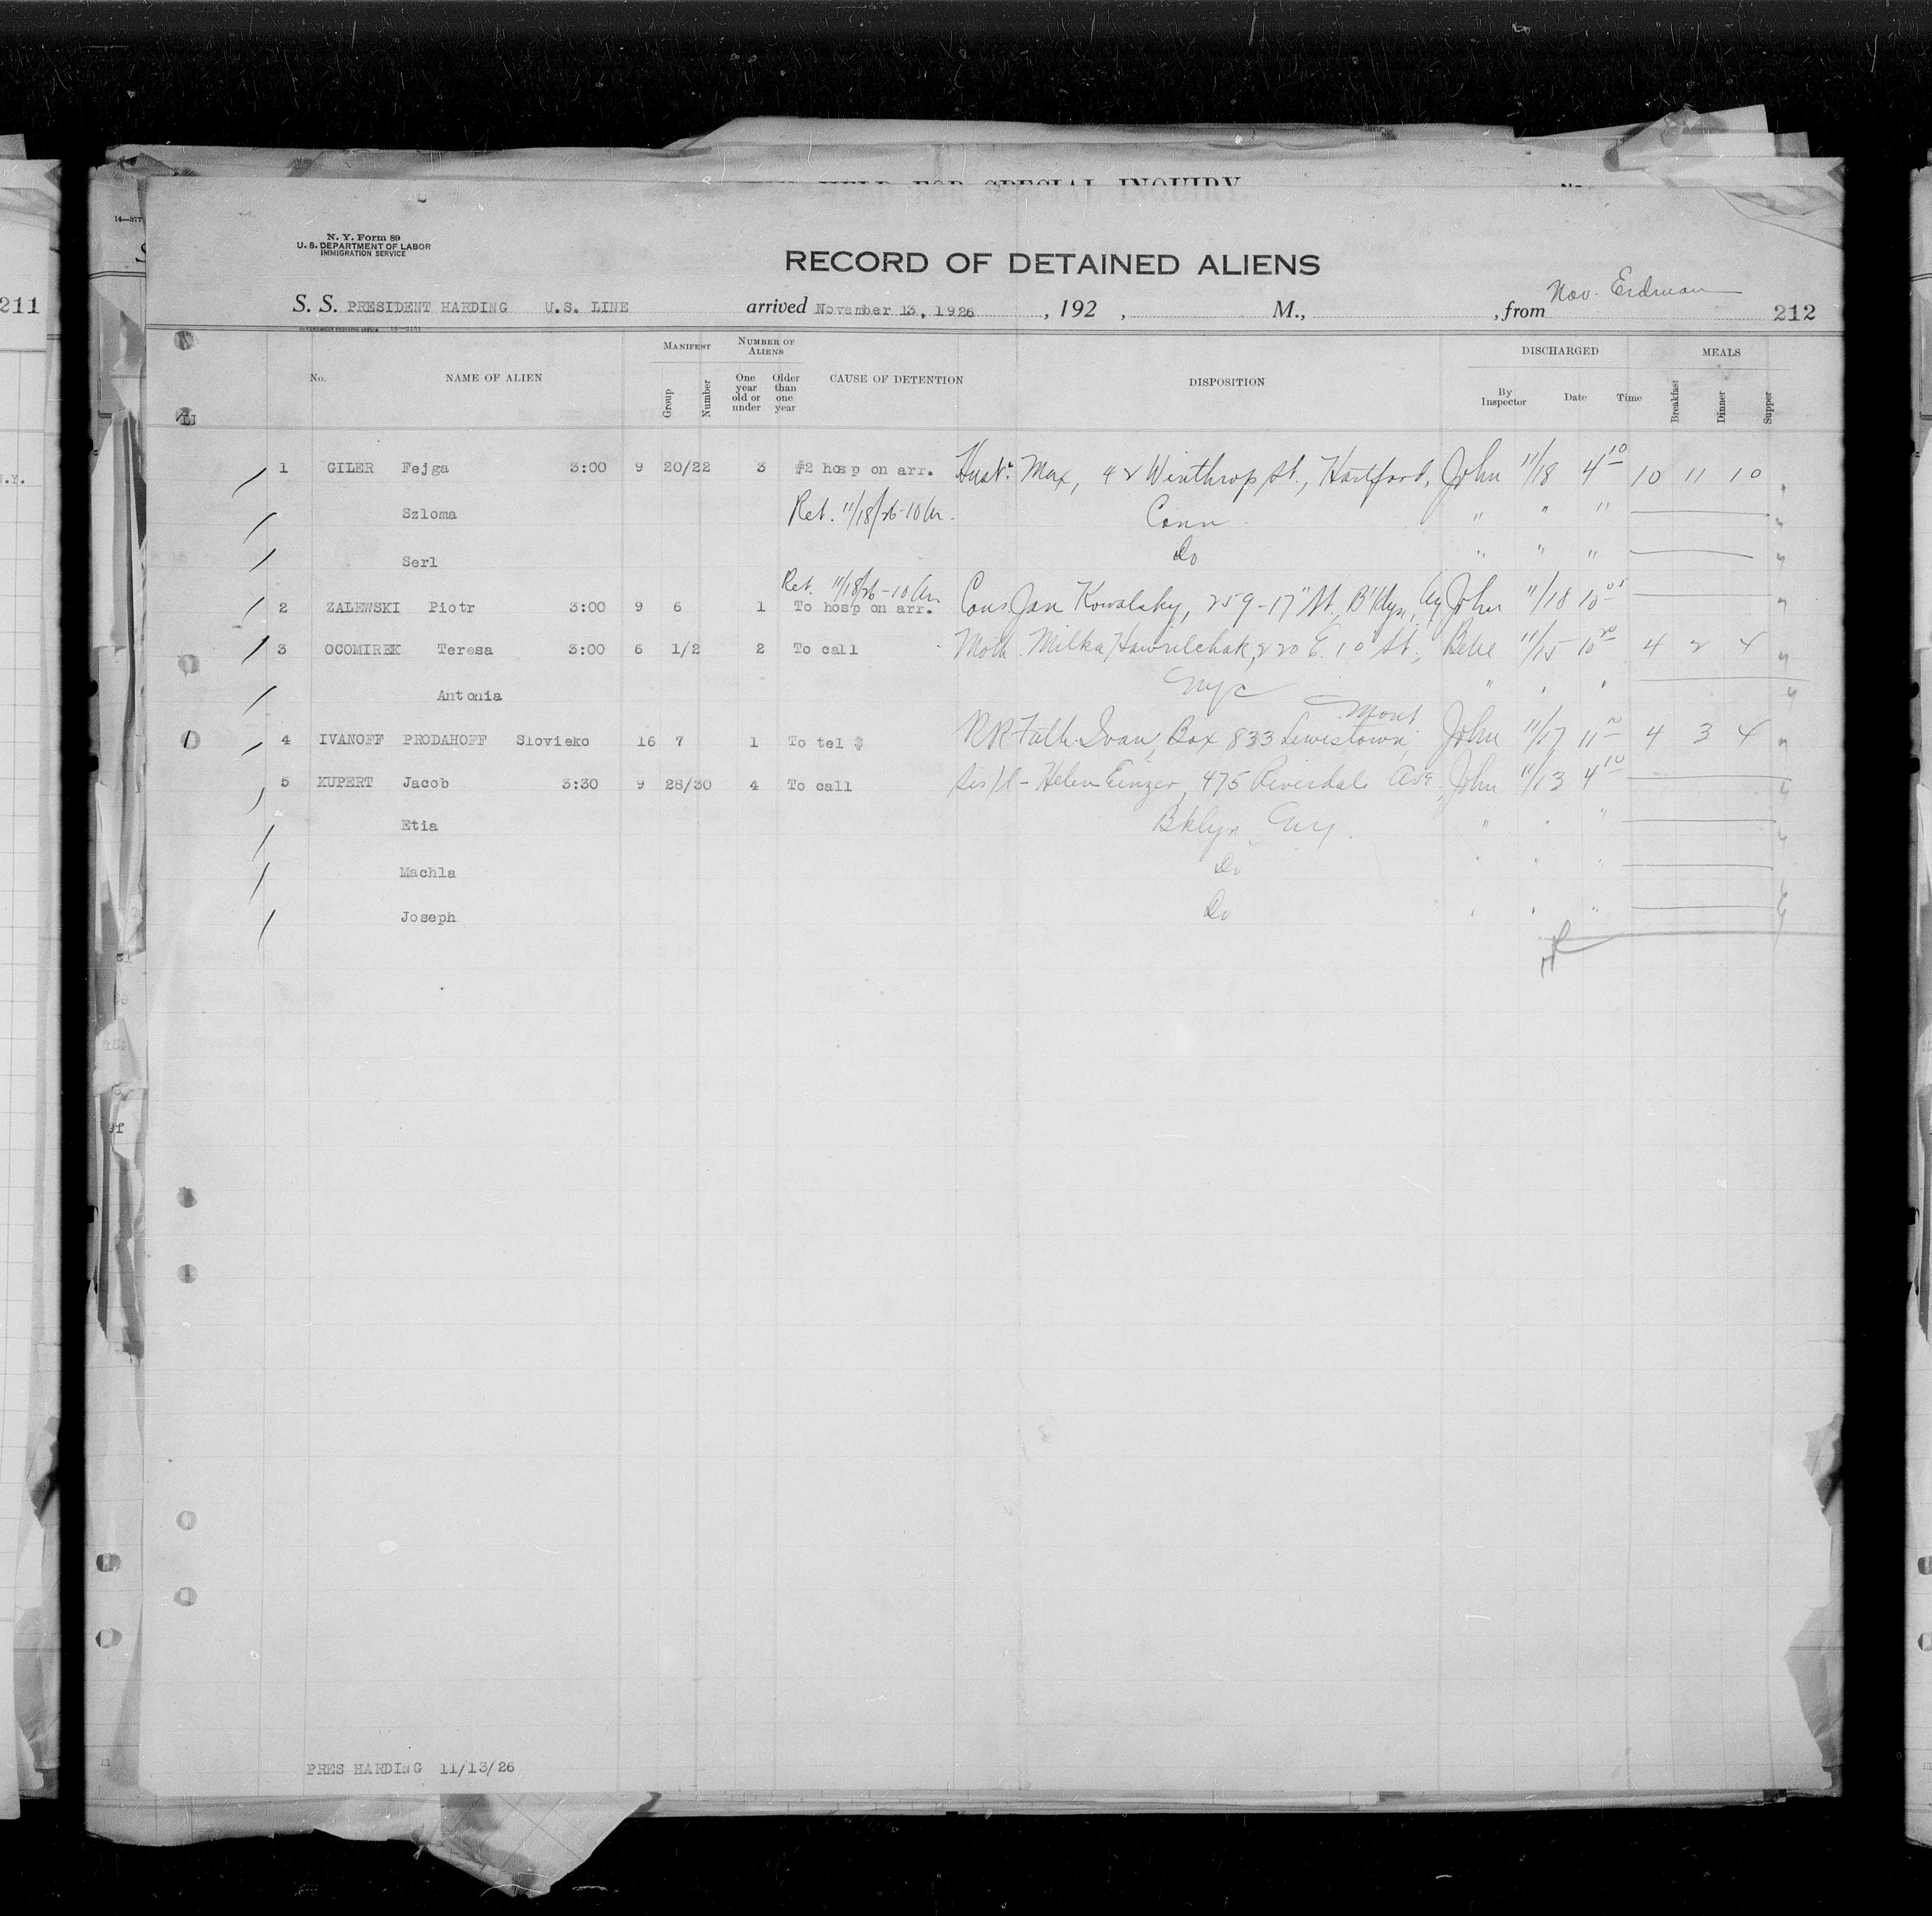 211
14—377
N. Y. Form 89
U. S. DEPARTMENT OF LABOR
IMMIGRATION SERVICE
HELD FOR SPECIAL INQUIRY.
No.
RECORD OF DETAINED ALIENS
S. S. PRESIDENT HARDING U.S. LINE arrived November 13, 1926 , 192 , M., , from Nov. Erdman 212
No. NAME OF ALIEN MANIFEST Group Number NUMBER OF ALIENS One year old or under Older than one year CAUSE OF DETENTION DISPOSITION DISCHARGED By Inspector Date Time MEALS Breakfast Dinner Supper
1 GILER Fejga 3:00 9 20/22 3 #2 hosp on arr. Husb. Max, 42 Winthrop St., Hartford, John 11/18 4 10 10 11 10
Szloma Ret. 11/18/26-10 Conn " " "
Serl Do " " "
Ret. 11/18/26-10
2 ZALEWSKI Piotr 3:00 9 6 1 To hosp on arr. Cous. Jan Kowalsky, 259-17" St., B'klyn, Ny John 11/18 10 05
3 OCOMIREK Teresa 3:00 6 1/2 2 To call Moth. Milka Hawrelchak, 220 E. 10 St., 11/15 10 20 4 2 4
Antonia Nyc " " "
Mont
4 IVANOFF PRODAHOFF Slovieko 16 7 1 To tel $ RR Fath. Ivan, Box 833 Lewistown, John 11/17 11 4 3 4
5 KUPERT Jacob 3:30 9 28/30 4 To call Sis/l - Helen Einzer, 475 Riverdale Ave John 11/13 4 10
Etia Bklyn Ny. " " "
Machla Do " " "
Joseph Do " " "
PRES HARDING 11/13/26